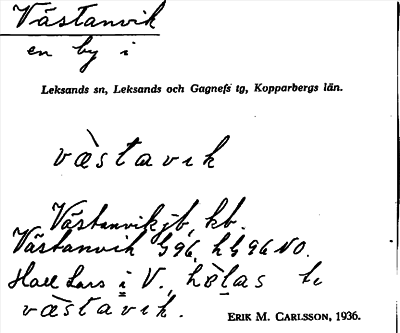 Västanvik
en by i
Leksands sn, Leksands och Gagnefs tg, Kopparbergs län.
væ̀stavɩk
Västanvik jb, kb.
Västanvik G96, hG96NO.
Hall Lars i V., las
væ̀stavɩk.
ERIK M. CARLSSON, 1936.